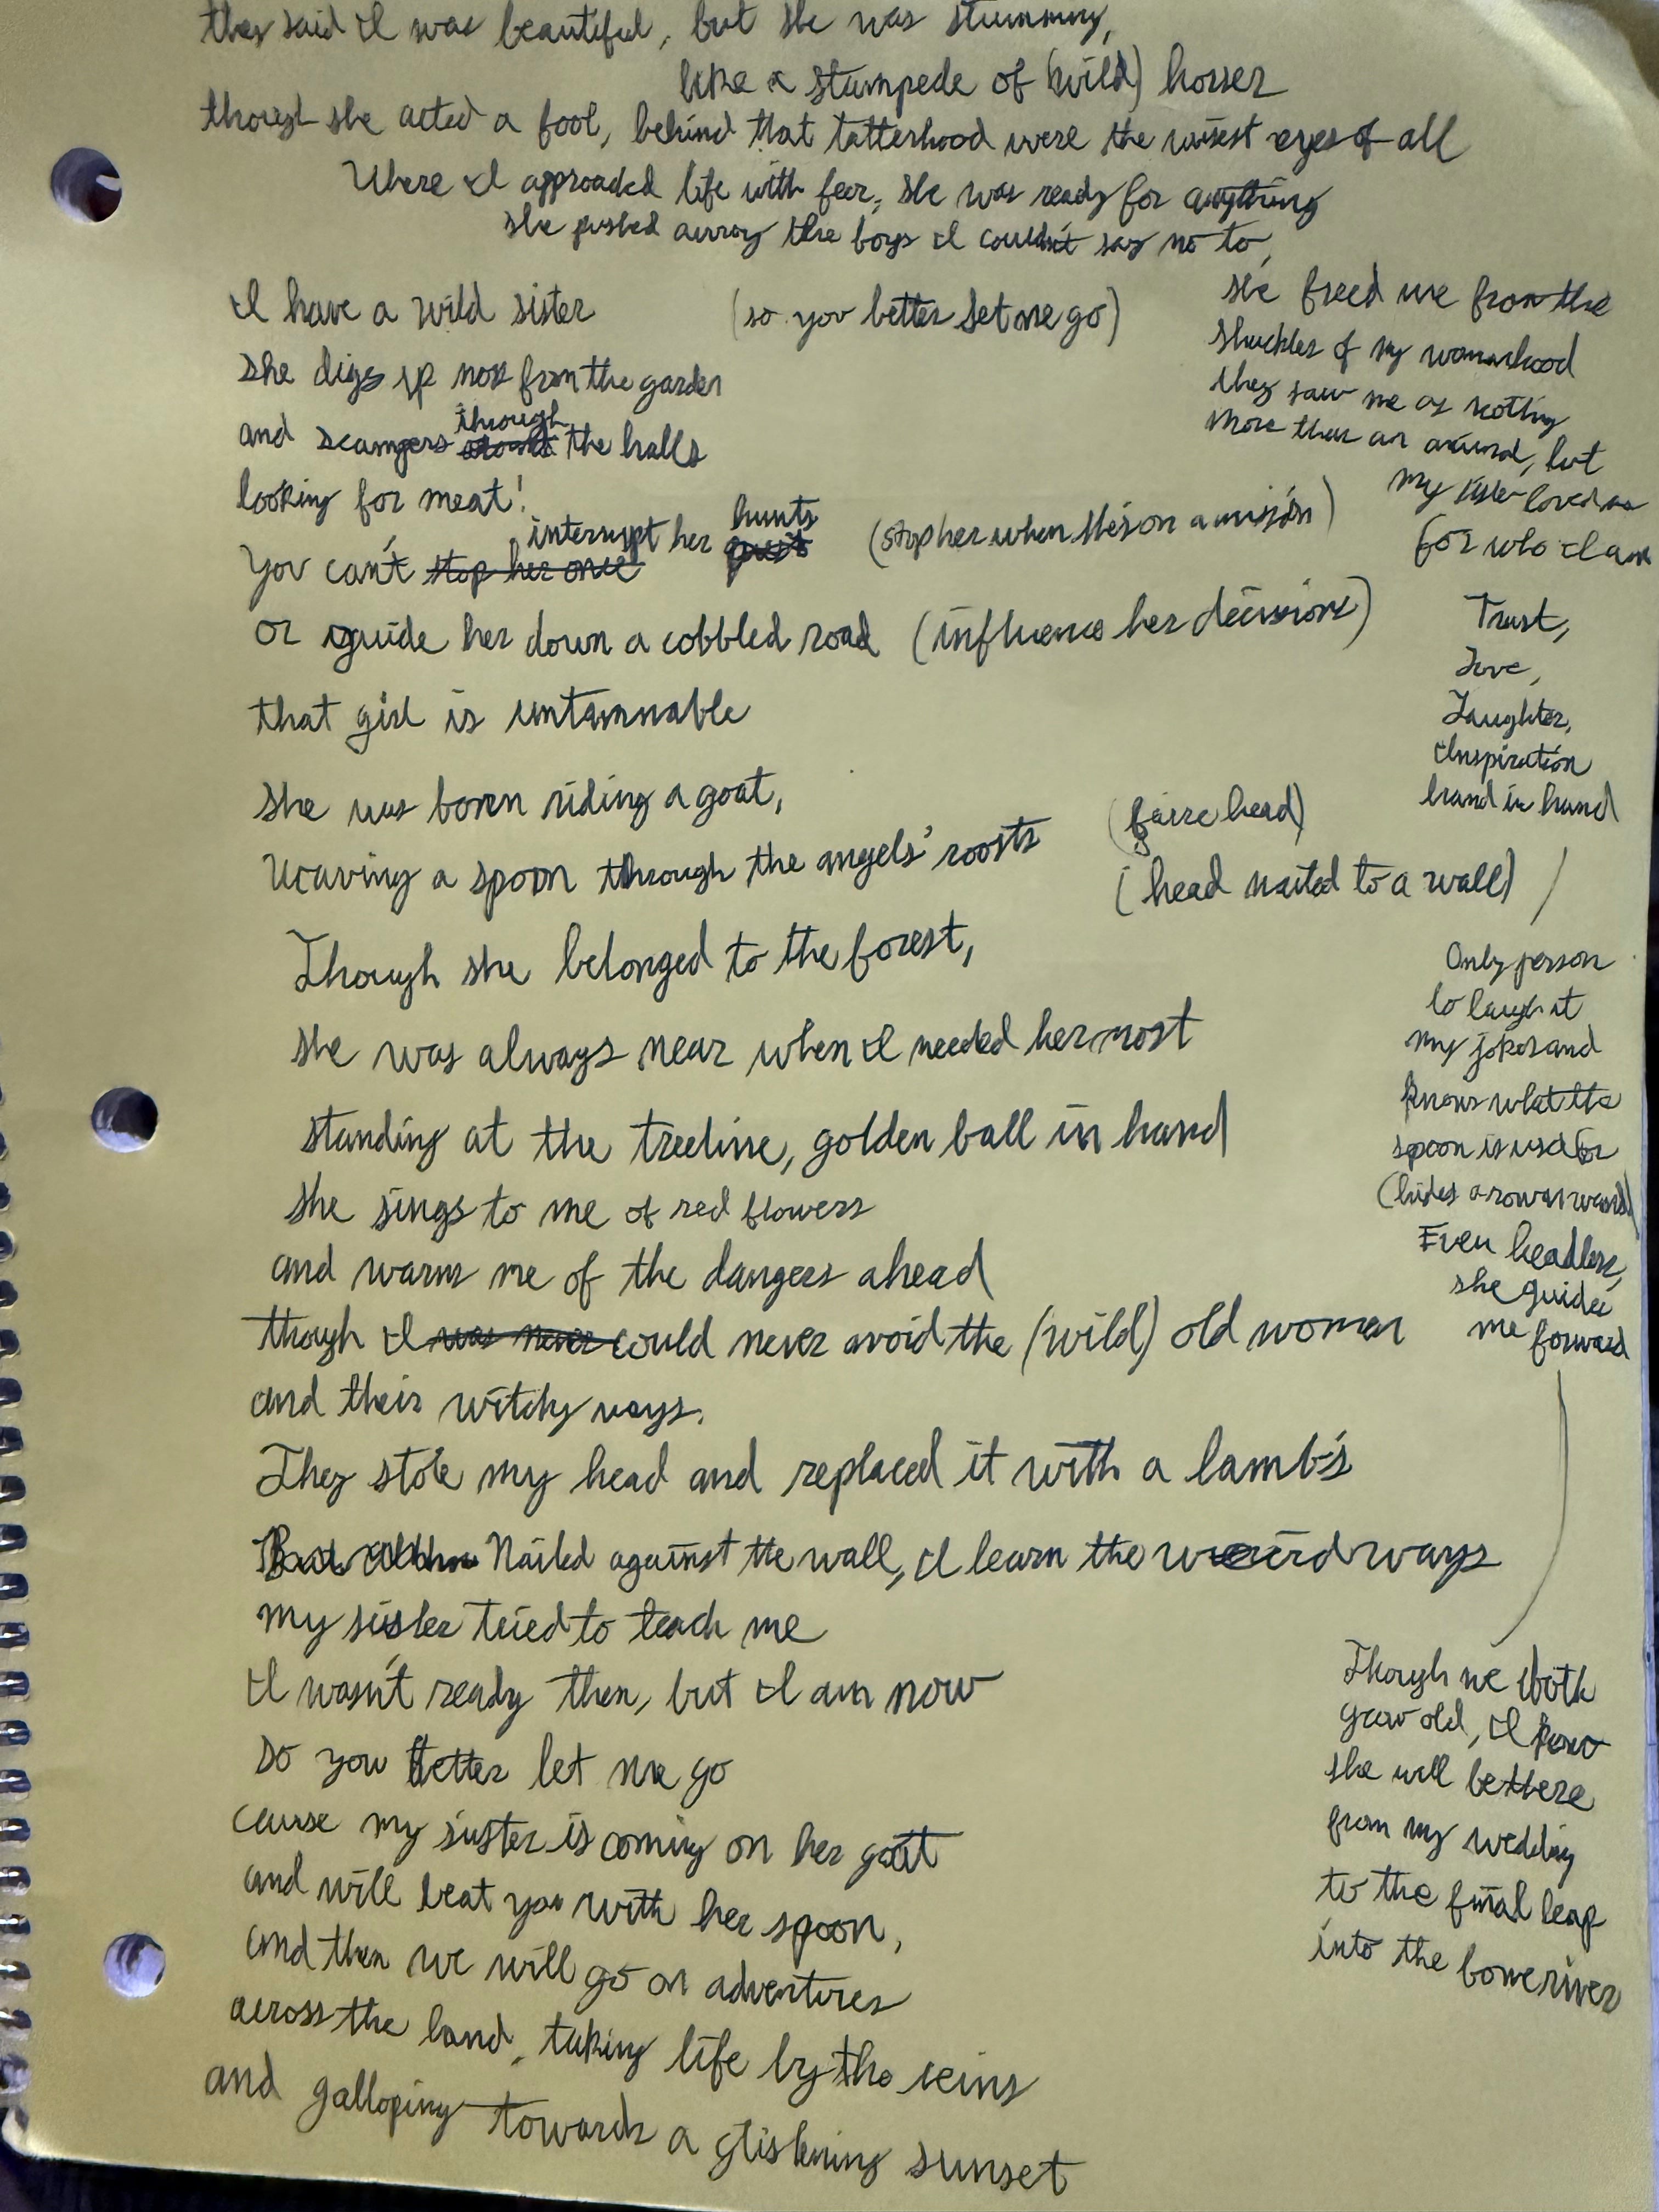 they said I was beautiful, but she was stunning,
like a stampede of (wild) horses
though she acted a fool, behind that tatterhood were the wisest eyes of all
Where I approached life with fear, she was ready for anything
she pushed away the boys I couldn't say no to,
I have a wild sister (so you better let me go)
She digs up nox from the garden
and scampers through the halls
looking for meat!
You can't stop her once interrupt her hunts (stop her when she's on a mission)
or guide her down a cobbled road (influence her decisions)
that girl is untamnable
She was born riding a goat,
Weaving a spoon through the angels' roosts
(head nailed to a wall)
Though she belonged to the forest,
she was always near when I needed her most
standing at the treeline, golden ball in hand
she sings to me of red flowers
and warns me of the dangers ahead
though I was never could never avoid the (wild) old women
and their witchy ways.
They stole my head and replaced it with a lamb's
Nailed against the wall, I learn the weird ways
my sister tried to teach me
I wasn't ready then, but I am now
So you better let me go
cause my sister is coming on her goat
and will beat you with her spoon,
and then we will go on adventures
across the land, taking life by the reins
and galloping towards a glistening sunset
she freed me from the
shackles of my womanhood
they saw me as nothing
more than an animal, but
my sister loved me
for who I am
Trust,
Love,
Laughter,
Inspiration
hand in hand
Only person
to laugh at
my jokes and
knows what the
spoon is used for
(hides a rowan wand)
Even headless,
she guides
me forward
Though we both
grow old, I know
she will be there
from my wedding
to the final leap
into the bone river